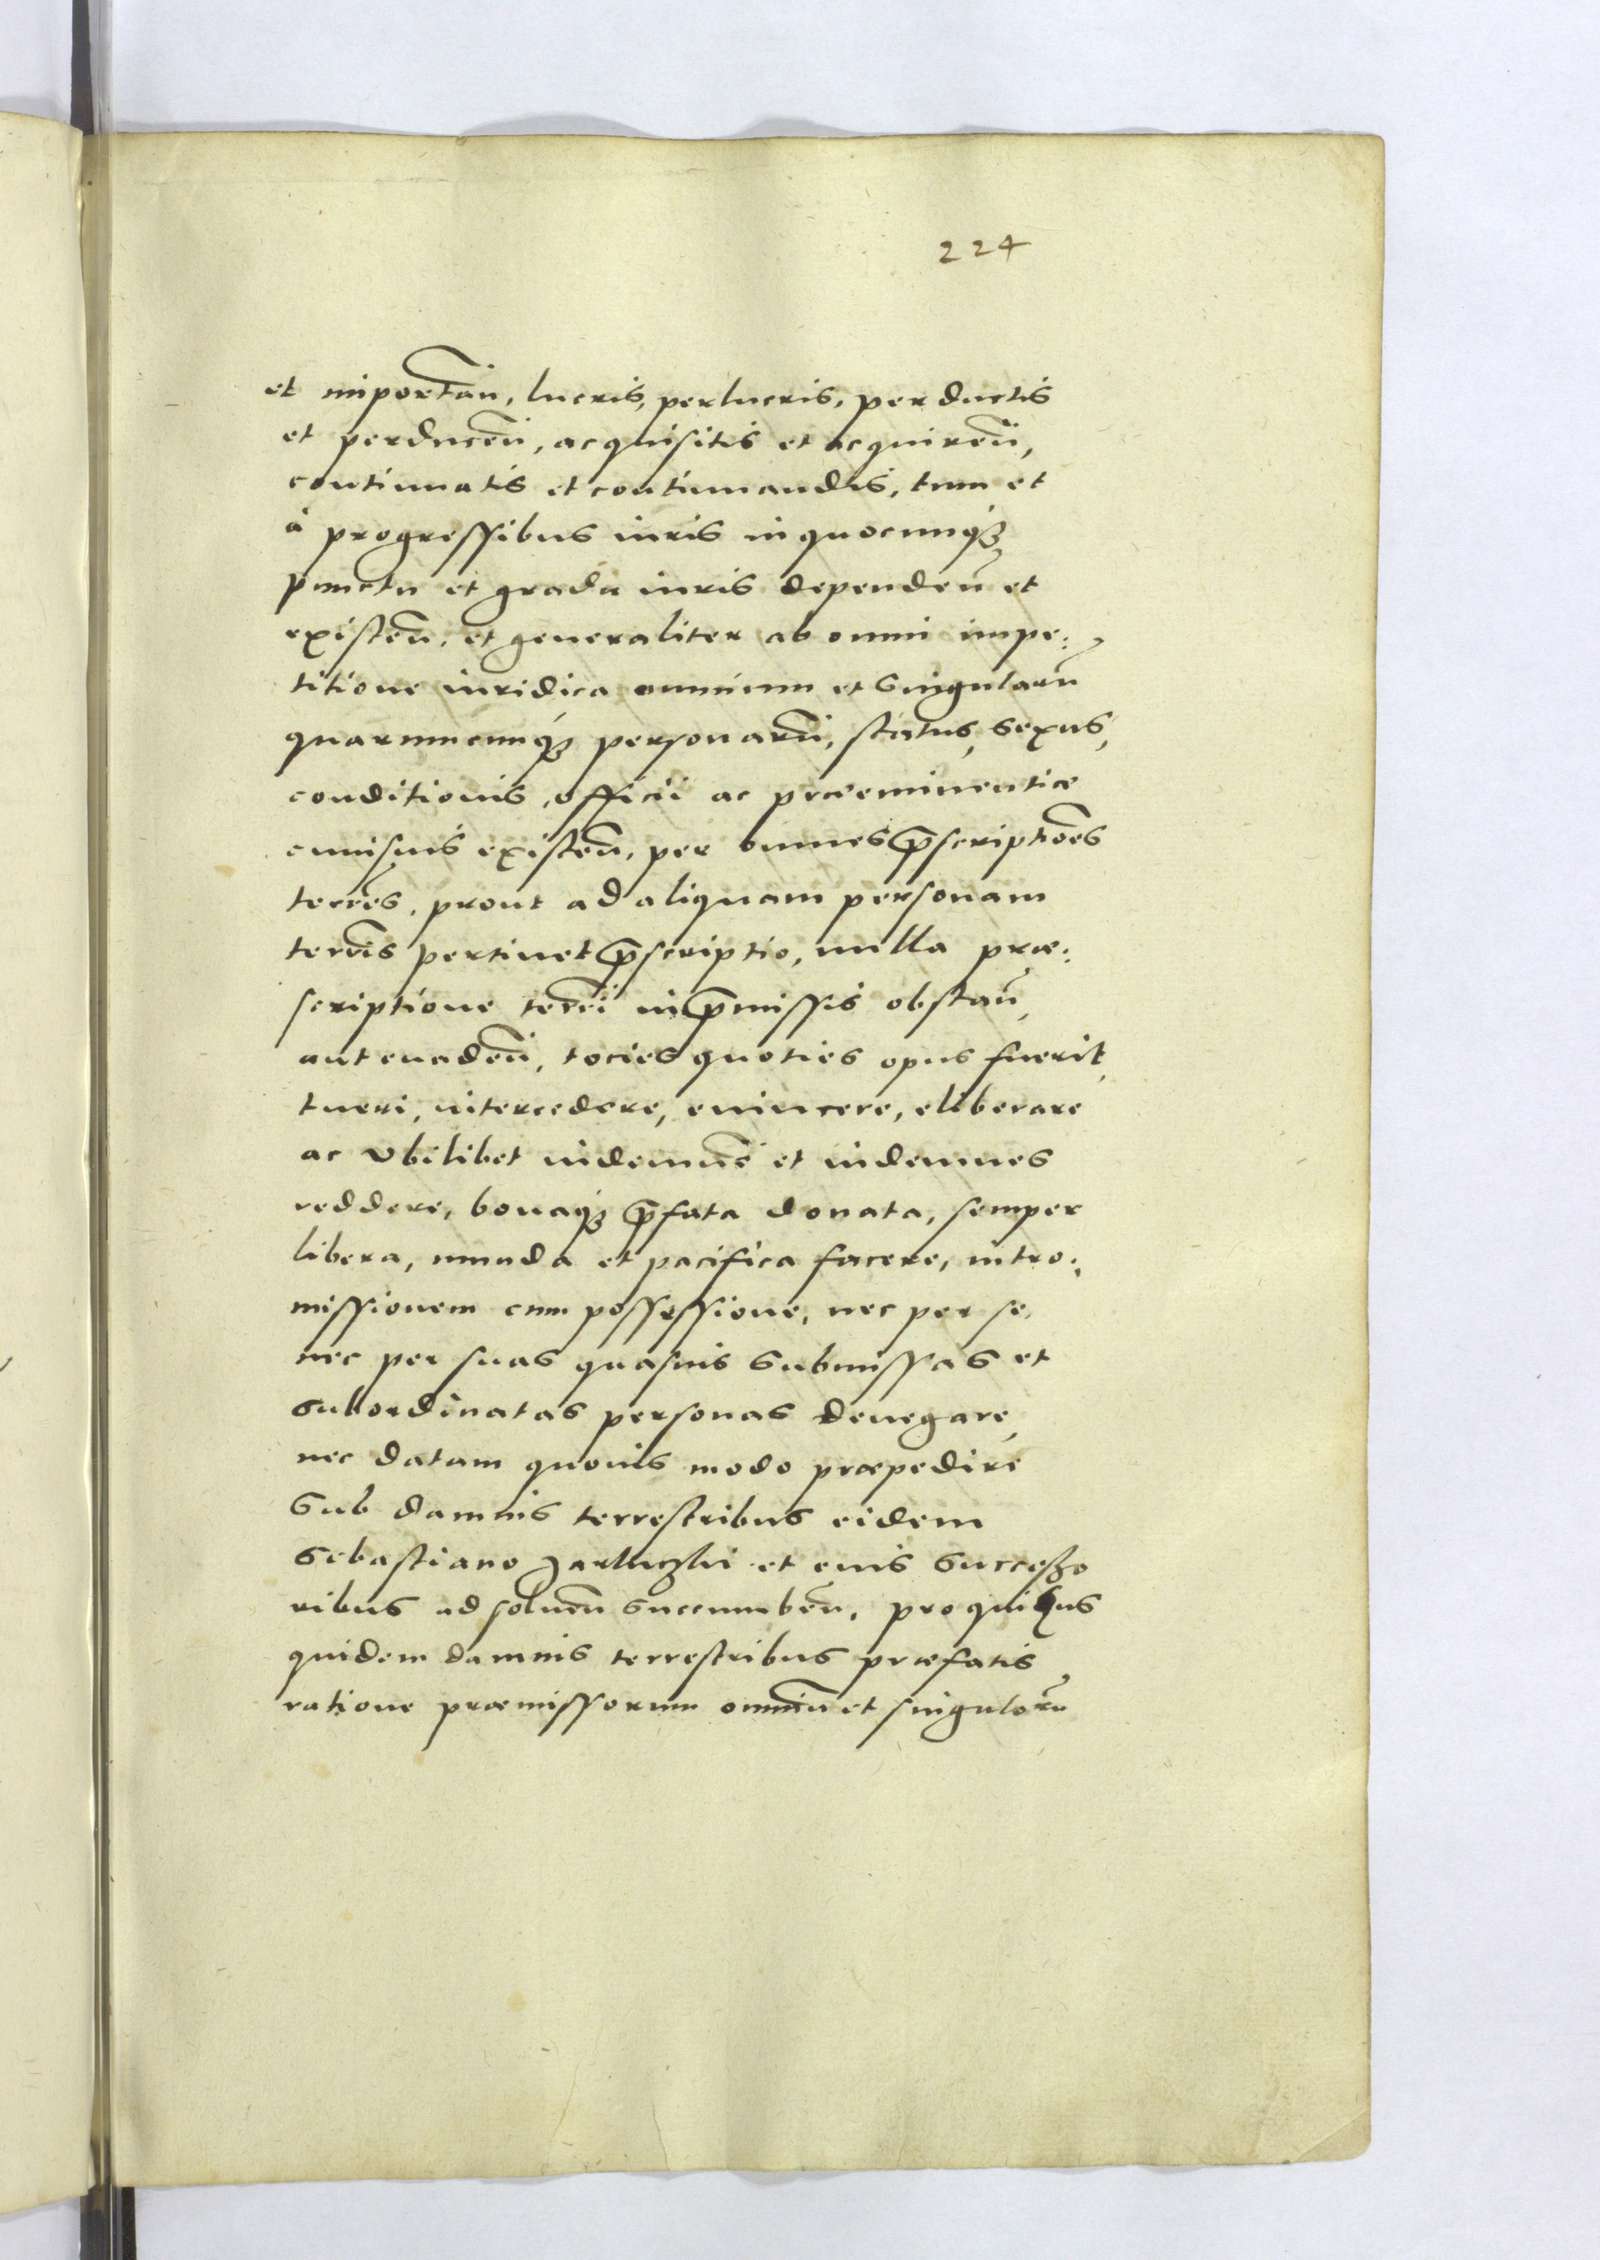 224
et importan̄, lucris, perlucris, perductis
et perducen̄, acquisitis et acquiren̄,
continuatis et continuandis, tum et
à progressibus iuris in quocunqȝ
punctu et gradu iuris dependen̄ et
existen̄, et generaliter ab omni impe:
titione iuridica omnium et singularū
quarumcunqȝ personarū, status, sexus,
conditionis, officii ac præeminentiæ
cuiusuis existen̄, per omnes p̄scriptiōes
terrēs, prout ad aliquam personam
terrēis pertinet p̄scriptio, nulla præ:
scriptione terrēi in p̄missis obstan̄,
aut euaden̄, tocies quoties opus fuerit,
tueri, intercedere, euincere, eliberare
ac vbilibet indemnē et indemnes
reddere, bonaqȝ p̄fata donata, semper
libera, munda et pacifica facere, intro:
missionem cum possessione, nec per se,
nec per suas quasuis submissas et
subordinatas personas denegare,
nec datam quouis modo præpedire
sub damnis terrestribus eidem
Sebastiano et euis successo
ribus ad soluen̄ succumben̄, pro quibus
quidem damnis terrestribus præfatis
ratione præmissorum omniū et singulorū